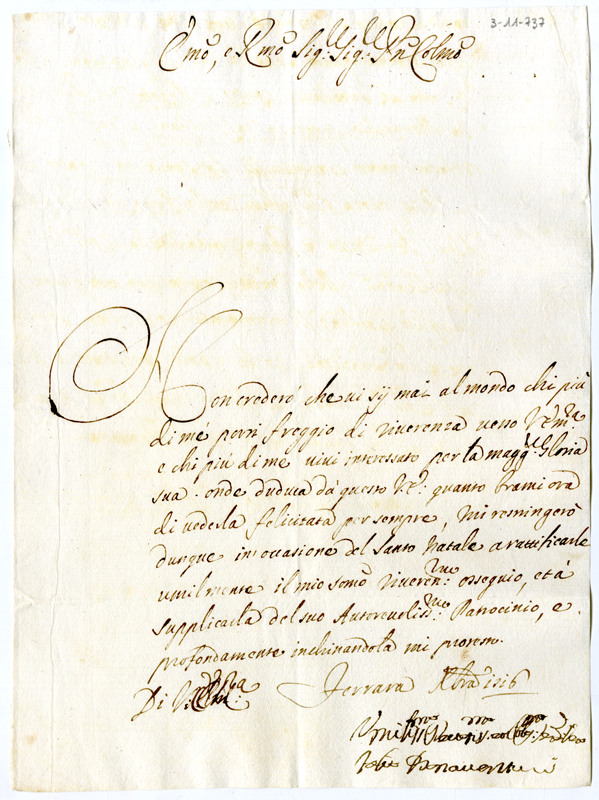 3-11-737
Emo, e Rmo Sig.r Sig.r Pñ Colmo
Non crederò che vi sij mai al mondo chi più
di mè porti freggio di riverenza verso V. Emza
e chi più di me vivi interessato per la magg.r Gloria
sua: onde deduca da questo V. E. quanto brami ora
di vederla felicitata per sempre, mi restringerò
dunque in occasione del Santo Natale a rattificarle
umilmente il mio somo riveren.mo ossequio, et à
supplicarla del suo Autorevoliss.mo Patrocinio, e
profondamente inchinandola mi protesto.
Di V. Emza Ferrara Xbra